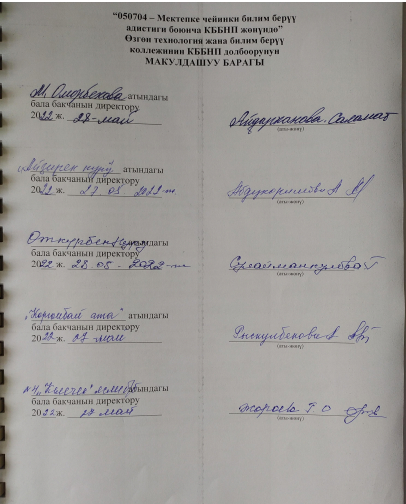 “050704 – Мектепке чейинки билим берүү
адистиги боюнча КББНП жөнүндө”
Өзгөн технология жана билим берүү
колледжинин КББНП долбоорунун
МАКУЛДАШУУ БАРАГЫ
М. Оморбекова атындагы
бала бакчанын директору
2022 ж. 28 - май
Айдарканова Саламат
(аты-жөнү)
Айзирек нуру атындагы
бала бакчанын директору
2022 ж. 27 05 2022-ж
Абдукаримова А
(аты-жөнү)
атындагы
бала бакчанын директору
2022 ж. 28 05 - 2022-ж
Сулайманкулова Г
(аты-жөнү)
„Коргонбай ата" атындагы
бала бакчанын директору
2022 ж. 27 май
Рыскулбекова А
(аты-жөнү)
атындагы
бала бакчанын директору
2022 ж. 28 май
Жороева Г О
(аты-жөнү)